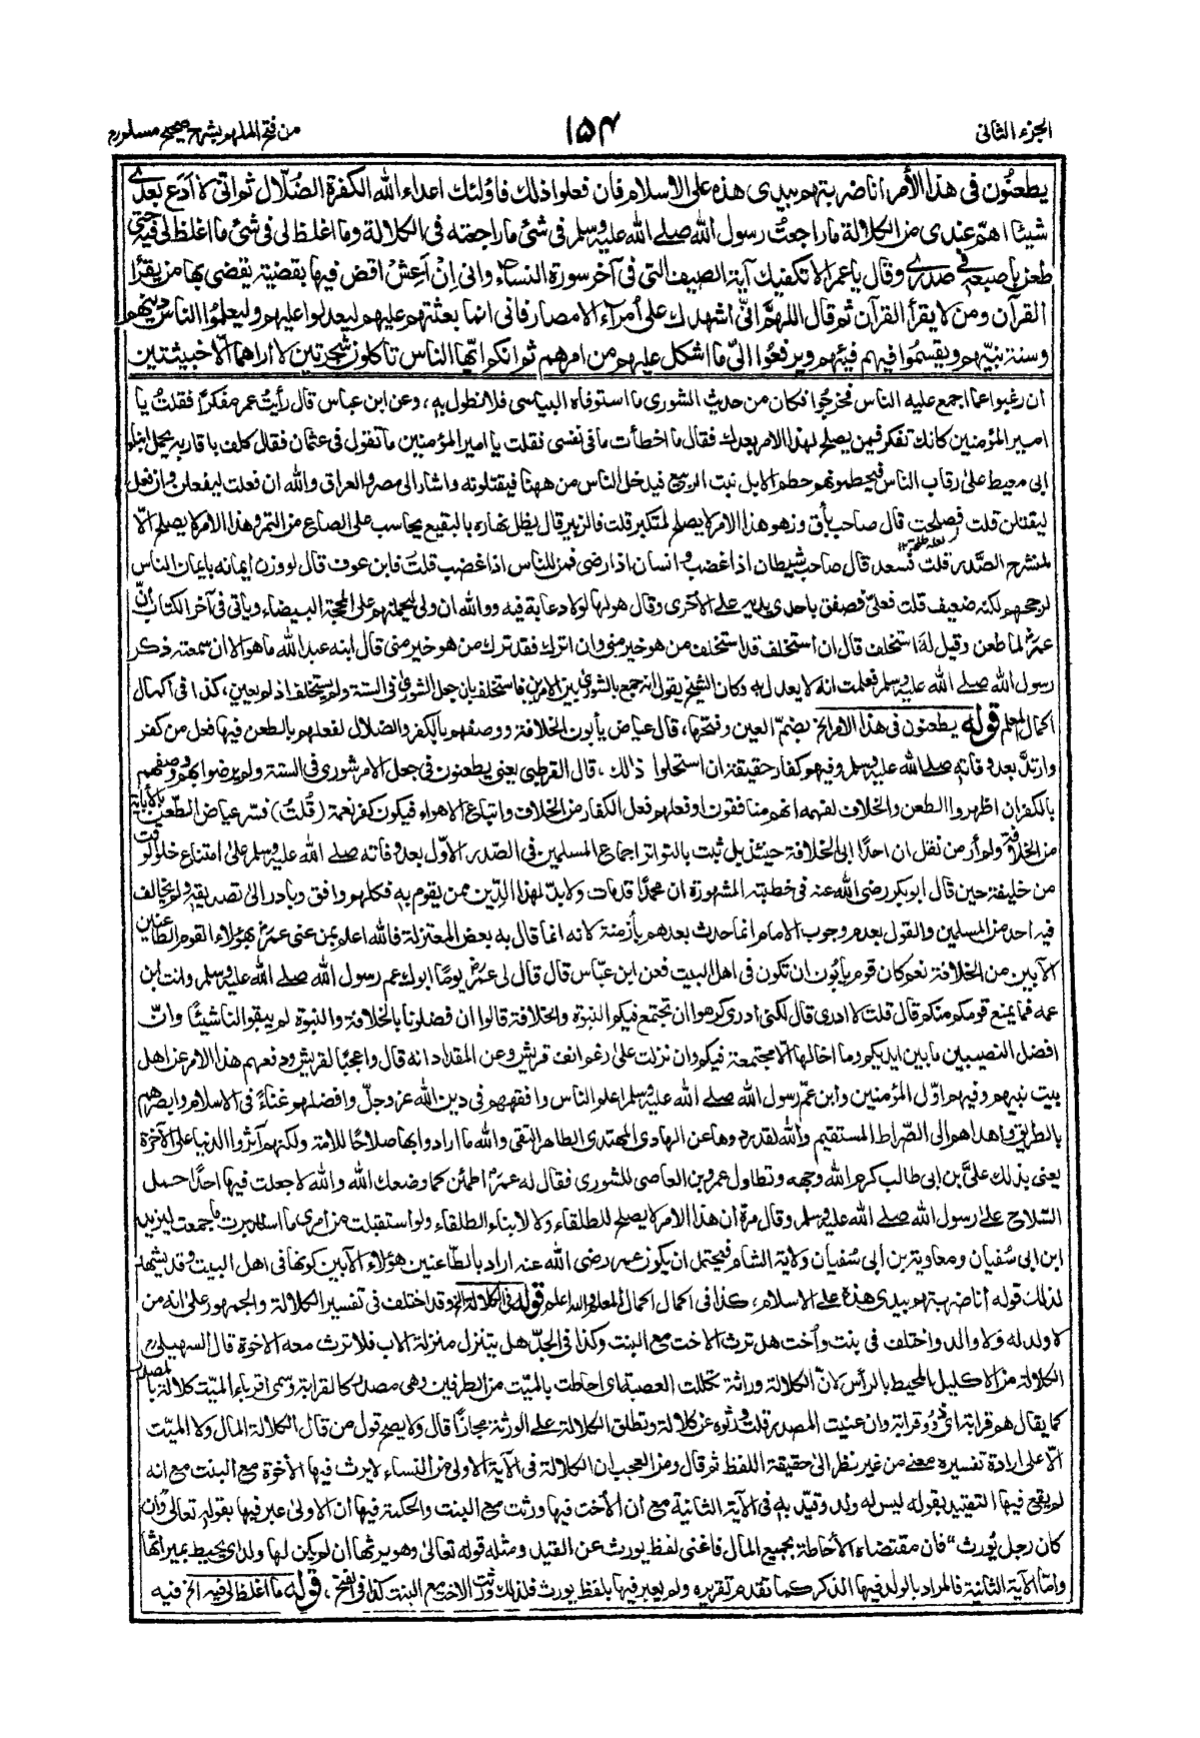 الجزء الثاني
١٥٤
من فتح الملهم بشرح صحيح مسلم
يطعنون في هذا الأمر انا ضربتهم بيدي هذه على الاسلام فإن فعلوا ذلك فاولئك اعداء الله الكفرة الضُلّال ثم اني لا اَدَع بعدي
شيئا اهم عندي من الكلالة ما راجعتُ رسول الله صلى الله عليه وسلم في شئ ما راجعته في الكلالة وما اغلظ لي في شئ ما اغلظ لي فيه حتى
طعن باصبعه في صدري وقال يا عمر الا تكفيك آية الصيف التي في آخر سورة النساء واني اِنْ اَعِشْ اقض فيها بقضية يقضي بها من يقرأ
القرآن ومن لا يقرأ القرآن ثم قال اللهم انّي اشهدك على اُمراء الامصار فاني انما بعثتهم عليهم ليعدلوا عليهم وليعلموا الناس دينهم
وسنة نبيّهم ويقسموا فيهم فيئهم ويرفعوا اليّ ما اشكل عليهم من امرهم ثم انكم ايّها الناس تاكلون شجرتين لا اراهما الّا خبيثتين
ان رغبوا عما اجمع عليه الناس فخرجوا فكان من حديث الشورى ما استوفاه البياسي فلا نطول به، وعن ابن عباس قال رأيتُ عمر مفكرًا فقلتُ يا
امير المؤمنين كانك تفكر فيمن يصلح لهذا الامر بعدك فقال ما اخطأت ما في نفسي فقلت يا امير المؤمنين ما تقول في عثمان فقال كلف باقاربه يحمل ابناء
ابي معيط على رقاب الناس فيحطمونهم حطم الابل نبت الربيع فيدخل الناس من ههنا فيقتلونه واشار الى مصر والعراق والله ان فعلت ليفعلن وان فعل
ليقتلن قلت فطلحة قال صاحب بأو وزهو هذا الامر لا يصلح لمتكبر قلت فالزبير قال يظل نهاره بالبقيع يحاسب على الصاع من التمر وهذا الامر لا يصلح الّا
لمنشرح الصَّدر قلت فسعد قال صاحب شيطان اذا غضب وانسان اذا رضي فمن للناس اذا غضب قلت فابن عوف قال لو وزن ايمانه بايمان الناس
لرجحهم لكنه ضعيف قلت فعليّ فصفق باحدى يديه على الأخرى وقال هو لها لولا دعابة فيه ووالله ان ولي ليحملنهم على المحجة البيضاء ويأتي في آخر الكتاب أنّ
عمر لما طعن وقيل لهُ استخلف قال ان استخلف فقد استخلف من هو خير مني وان اترك فقد ترك من هو خير مني قال ابنه عبد الله ما هو الا ان سمعته ذكر
رسول الله صلى الله عليه وسلم فعلمت انه لا يعدل به وكان الشيخ يقول انه جمع بالشورى بين الامرين فاستخلف بان جعل الشورى في الستة ولم يستخلف اذ لم يعين، كذا في اكمال
اكمال المعلم قوله يطعنون في هذا الامر الخ بضمّ العين وفتحها، قال عياض يأبون الخلافة ووصفهم بالكفر والضلال لفعلهم بالطعن فيها فعل من كفر
وارتدّ بعد وفاته صلى الله عليه وسلم وفيهم كفار حقيقة ان استحلوا ذلك، قال القرطبي يعني يطعنون في جعل الامر شورى في الستة ولم يرضوا بهم ووصفهم
بالكفر ان اظهروا الطعن والخلاف لفهمه انهم منافقون او فعلهم فعل الكفار من الخلاف واتباع الاهواء فيكون كفر نعمة (قُلتُ) فسّر عياض الطّعن بالأباية
من الخلافة ولم أر من نقل ان احدًا ابى الخلافة حينئذ بل ثبت بالتواتر اجماع المسلمين في الصّدر الاوّل بعد وفاته صلى الله عليه وسلم على امتناع خلو الوقت
من خليفة حين قال ابو بكر رضي الله عنه في خطبته المشهورة ان محمدًا قد مات ولا بدّ لهذا الدّين ممن يقوم به فكلهم وافق وبادر الى تصديقه ولم يخالف
فيه احد من المسلمين والقول بعدم وجوب الامام انما حدث بعدهم بأزمنة لانه انما قال به بعض المعتزلة فالله اعلم بمن عنى عمر بهؤلاء القوم الطاعنين
الآبين من الخلافة نعم كان قوم يأبون ان تكون في اهل البيت فعن ابن عبّاس قال قال لي عمر يومًا ابوك عم رسول الله صلى الله عليه وسلم وانت ابن
عمه فما يمنع قومكم منكم قال قلت لا ادري قال لكني ادري كرهوا ان تجتمع فيكم النبوة والخلافة قالوا ان فضلونا بالخلافة والنبوة لم يبقوا لنا شيئًا وانّ
افضل النصيبين ما بين ايديكم وما اخالها الّا مجتمعة فيكم وان نزلت على رغم انف قريش وعن المقداد انه قال واعجبًا لقريش ودفعهم هذا الامر عن اهل
بيت نبيهم وفيهم اوّل المؤمنين وابن عمّ رسول الله صلى الله عليه وسلم اعلم الناس وافقههم في دين الله عز وجلّ وافضلهم غناءً في الاسلام وابصرهم
بالطريق واهداهم الى الصّراط المستقيم والله لقد زووها عن الهادي المهتدي الطاهر النقي والله ما ارادوا بها صلاحًا للامة ولكنهم آثروا الدنيا على الآخرة
يعني بذلك عليَّ بن ابي طالب كرم الله وجهه وتطاول عمرو بن العاصي للشورى فقال له عمر اطمئن كما وضعك الله والله لا جعلت فيها احدًا حمل
السّلاح على رسول الله صلى الله عليه وسلم وقال مرة ان هذا الامر لا يصلح للطلقاء ولا لابناء الطلقاء ولو استقبلت من امري ما استدبرت ما جمعت ليزيد
ابن ابي سُفيان ومعاوية بن ابي سُفيان ولاية الشام فيحتمل ان يكون عمر رضي الله عنه اراد بالطّاعنين هؤلاء الآبين كونها في اهل البيت وقد يشهد
لذلك قوله انا ضربتهم بيدي هذه على الاسلام، كذا في اكمال اكمال المعلم والله اعلم قوله في الكلالة الخ وقد اختلف في تفسير الكلالة والجمهور على انه من
لا ولد له ولا والد واختلف في بنت واُخت هل ترث الاخت مع البنت وكذا في الجدّ هل يتنزل منزلة الاب فلا ترث معه الاخوة قال السهيلي
الكلالة من الاكليل المحيط بالرأس لانّ الكلالة وراثة تكللت العصبة اي احاطت بالميّت من الطرفين وهي مصدر كالقرابة وسمي اقرباء الميّت كلالة بالمصدر
كما يقال هم قرابة اي ذوو قرابة وان عنيت المصدر قلت ورثوه عن كلالة وتطلق الكلالة على الورثة مجازًا قال ولا يصح قول من قال الكلالة المال ولا الميّت
الّا على ارادة تفسيره معنى من غير نظر الى حقيقة اللفظ ثم قال ومن العجب ان الكلالة في الآية الاولى من النساء لا يرث فيها الأخوة مع البنت مع انه
لم يقع فيها التقييد بقوله ليس له ولد وقيّد به في الآية الثانية مع ان الأخت فيها ورثت مع البنت والحكمة فيها ان الاولى عبر فيها بقوله تعالى وان
كان رجل يُورث" فان مقتضاه الأحاطة بجميع المال فاغنى لفظ يورث عن القيد ومثله قوله تعالى وهو يرثها ان لم يكن لها ولد اي يحيط بميراثها
وامّا الآية الثانية فالمراد بالولد فيها الذكر كما تقدم تقريره ولم يعبر فيها بلفظ يورث فلذلك ورثت الاخت مع البنت كذا في الفتح، قوله ما اغلظ لي فيه الخ فيه